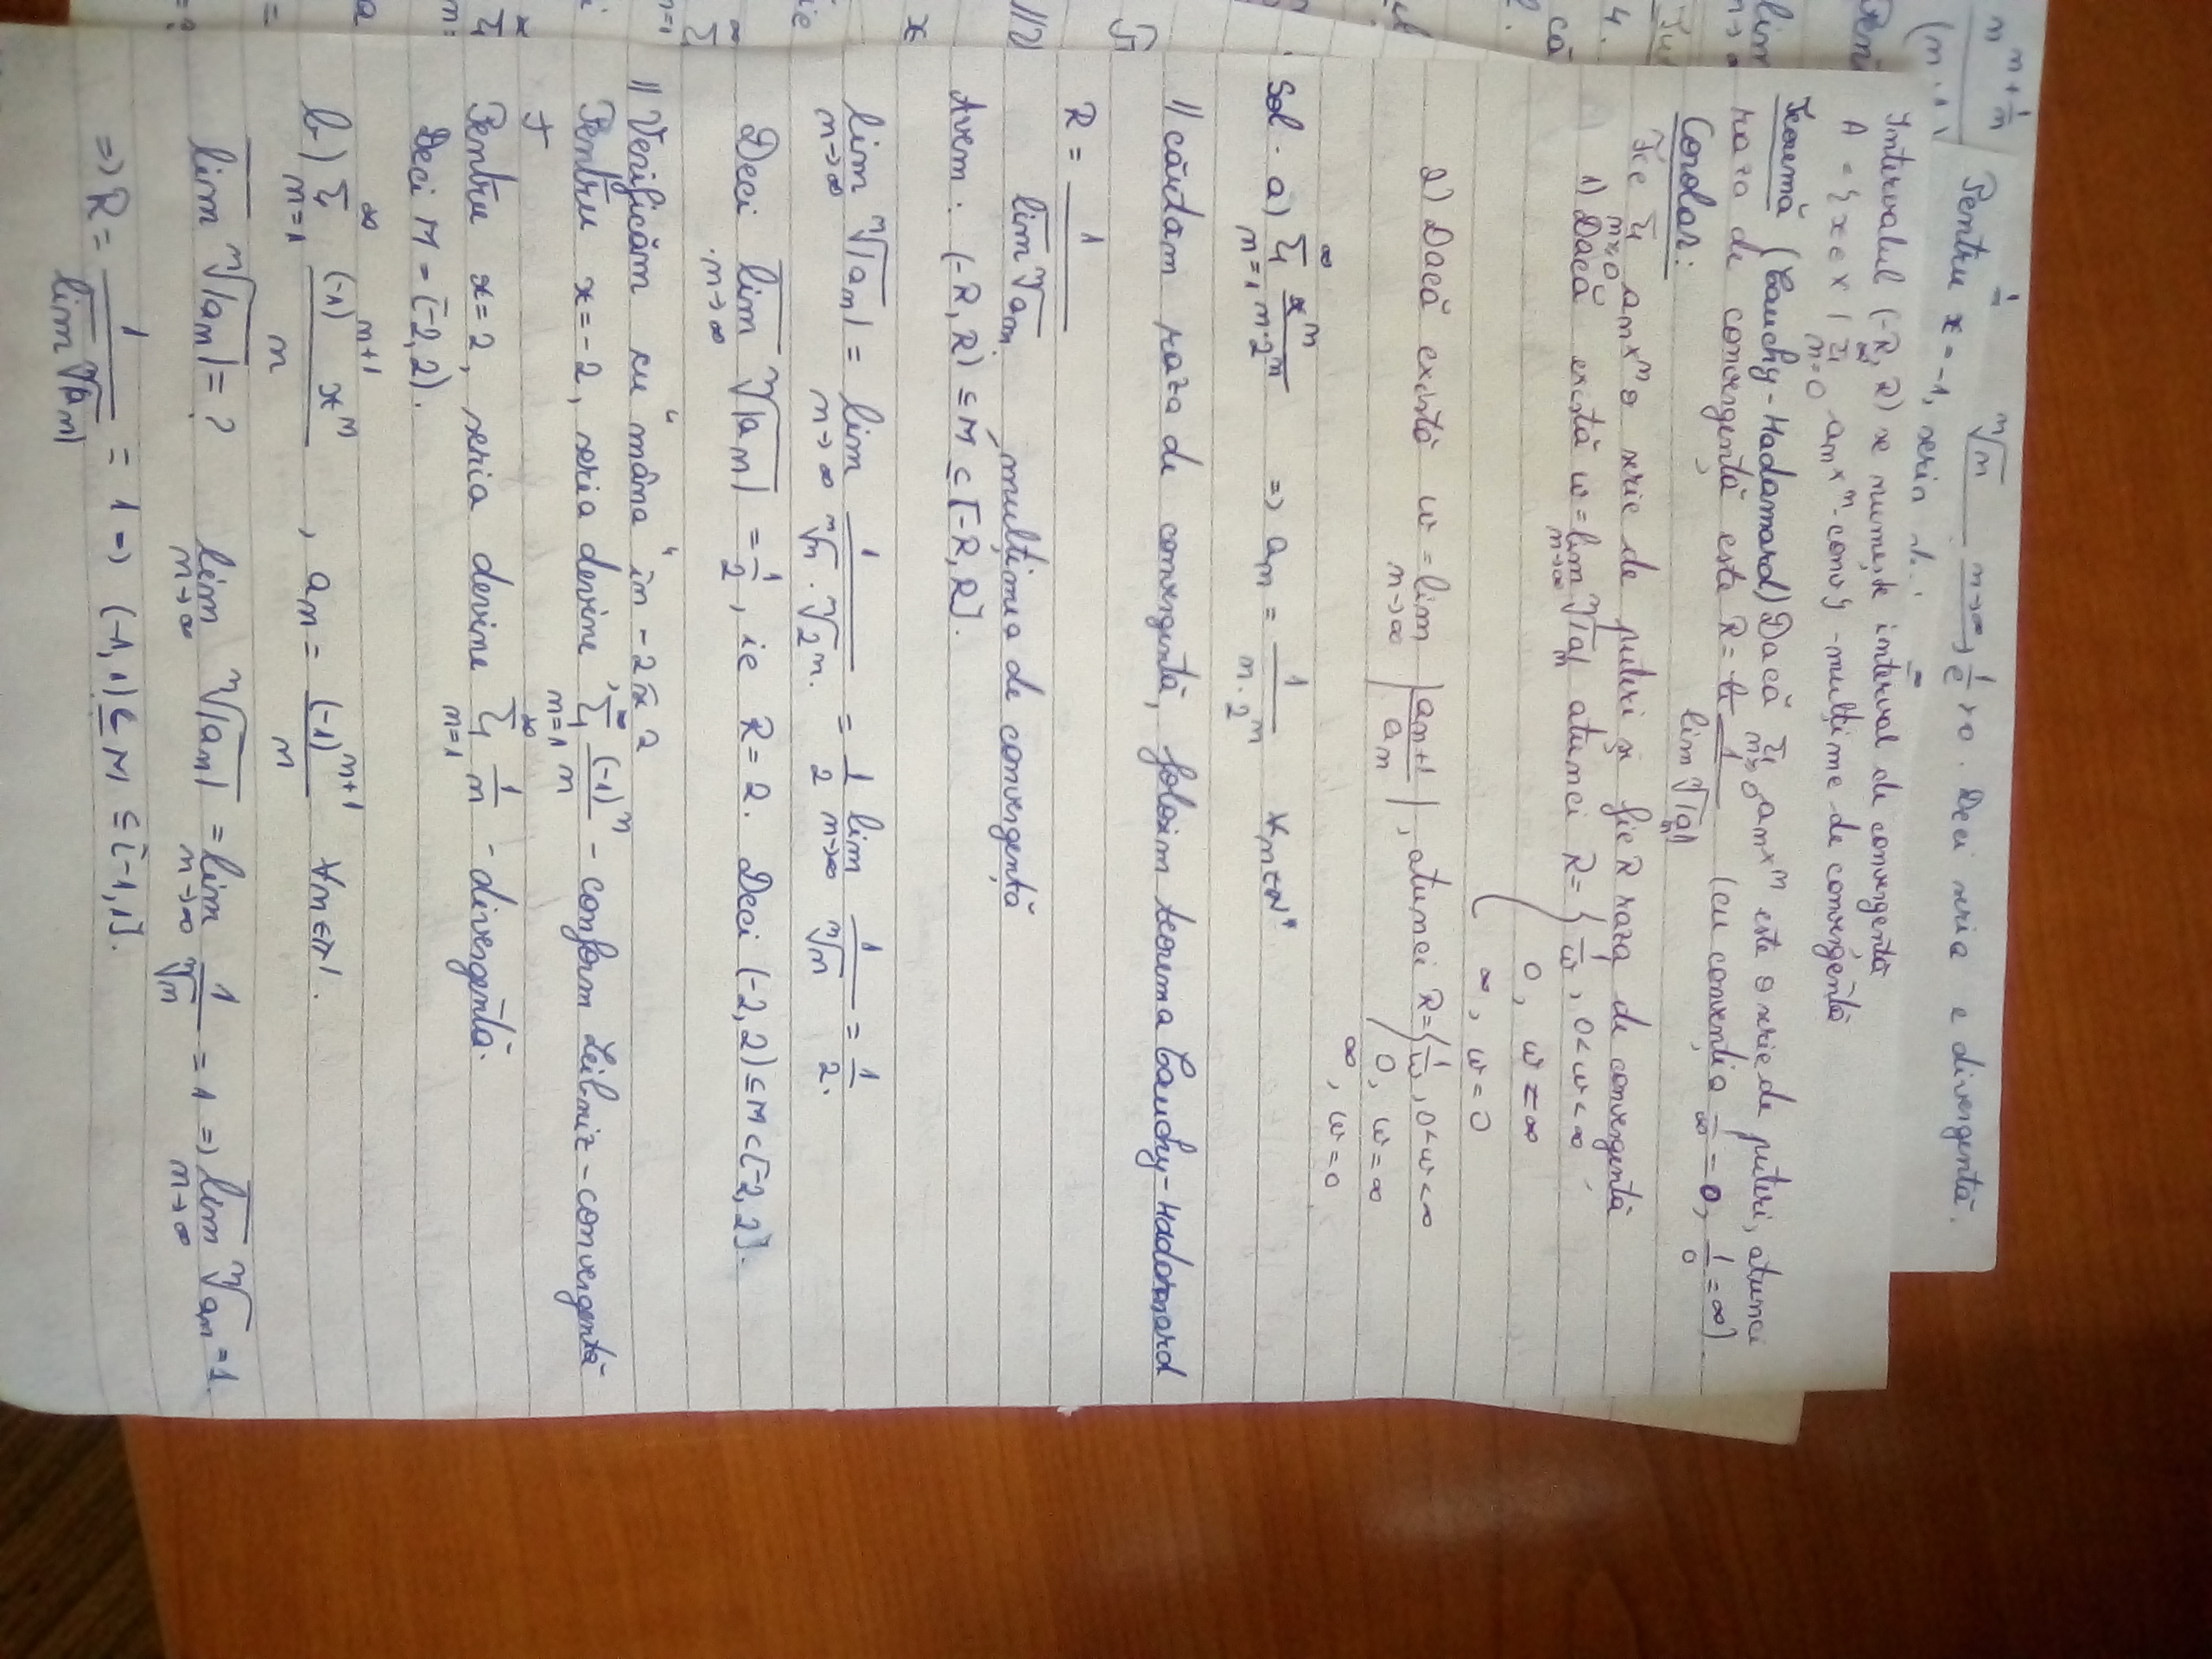 Pentru x = -1, seria
ⁿ√n
n→∞ 1/e ≠ 0. Deci seria e divergentă.
Intervalul (-R, R) se numește interval de convergență
A = {x ∈ X | ∑_{n=0}^∞ aₙxⁿ - conv} - mulțime de convergență
Teoremă (Cauchy-Hadamard) Dacă ∑_{n≥0} aₙxⁿ este o serie de puteri, atunci
raza de convergență este R = 1/(lim̅ ⁿ√|aₙ|) (cu convenția 1/∞ = 0, 1/0 = ∞).
Corolar:
Fie ∑_{n≥0} aₙxⁿ o serie de puteri și fie R raza de convergență
1) Dacă există ω = lim_{n→∞} ⁿ√|aₙ| atunci R = { 1/ω, 0<ω<∞
0, ω = ∞
∞, ω = 0
2) Dacă există ω = lim_{n→∞} |aₙ₊₁/aₙ|, atunci R = { 1/ω, 0<ω<∞
0, ω = ∞
∞, ω = 0
Sol. a) ∑_{n=1}^∞ xⁿ/(n·2ⁿ) => aₙ = 1/(n·2ⁿ) ∀n∈N*
// căutăm raza de convergență, folosim teorema Cauchy-Hadamard
R = 1/(lim̅ ⁿ√aₙ)
mulțimea de convergență
Avem: (-R, R) ⊆ M ⊆ [-R, R].
lim_{n→∞} ⁿ√|aₙ| = lim_{n→∞} 1/(ⁿ√n · ⁿ√2ⁿ) = 1/2 lim_{n→∞} 1/ⁿ√n = 1/2.
Deci lim̅_{n→∞} ⁿ√|aₙ| = 1/2, ie R = 2. Deci (-2, 2) ⊆ M ⊂ [-2, 2].
// Verificăm cu "mâna" în -2 și 2
Pentru x = -2, seria devine ∑_{n=1}^∞ (-1)ⁿ/n - conform Leibniz - convergentă
Pentru x = 2, seria devine ∑_{n=1}^∞ 1/n - divergentă.
Deci M = [-2, 2).
b) ∑_{n=1}^∞ (-1)ⁿ⁺¹xⁿ/n, aₙ = (-1)ⁿ⁺¹/n ∀n∈N*.
lim̅ ⁿ√|aₙ| = ? lim_{n→∞} ⁿ√|aₙ| = lim_{n→∞} 1/ⁿ√n = 1 => lim̅_{n→∞} ⁿ√aₙ = 1.
=> R = 1/(lim̅ ⁿ√|aₙ|) = 1 => (-1, 1) ⊆ M ⊆ [-1, 1].